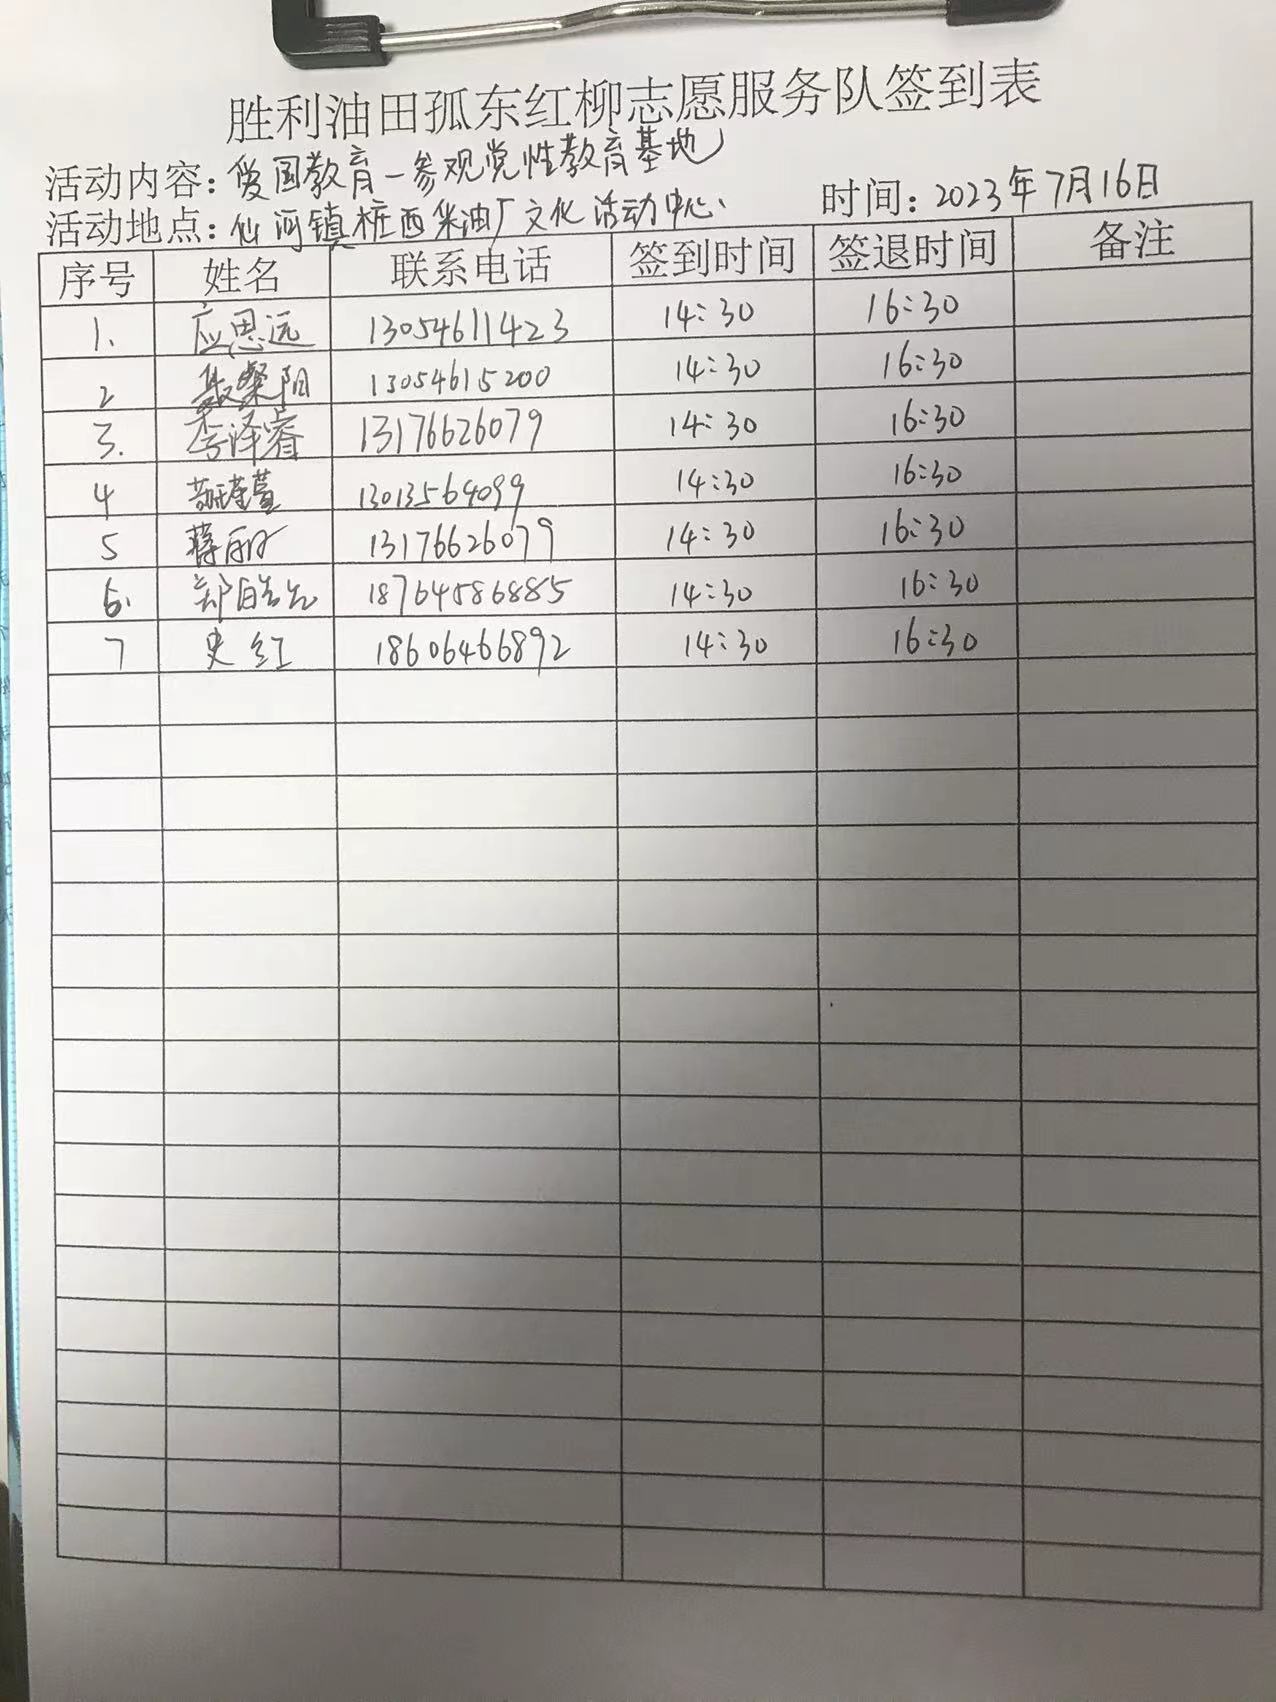 胜利油田孤东红柳志愿服务队签到表
活动内容：爱国教育一参观党性教育基地
活动地点：仙河镇桩西采油厂文化活动中心 时间：2023年7月16日
序号 姓名 联系电话 签到时间 签退时间 备注
1. 应思远 13054611423 14:30 16:30
2 阳 13054615200 14:30 16:30
3. 李泽睿 13176626079 14:30 16:30
4 13013564099 14:30 16:30
5 蒋丽 13176626079 14:30 16:30
6. 郑皓元 18764586885 14:30 16:30
7 史红 18606466892 14:30 16:30